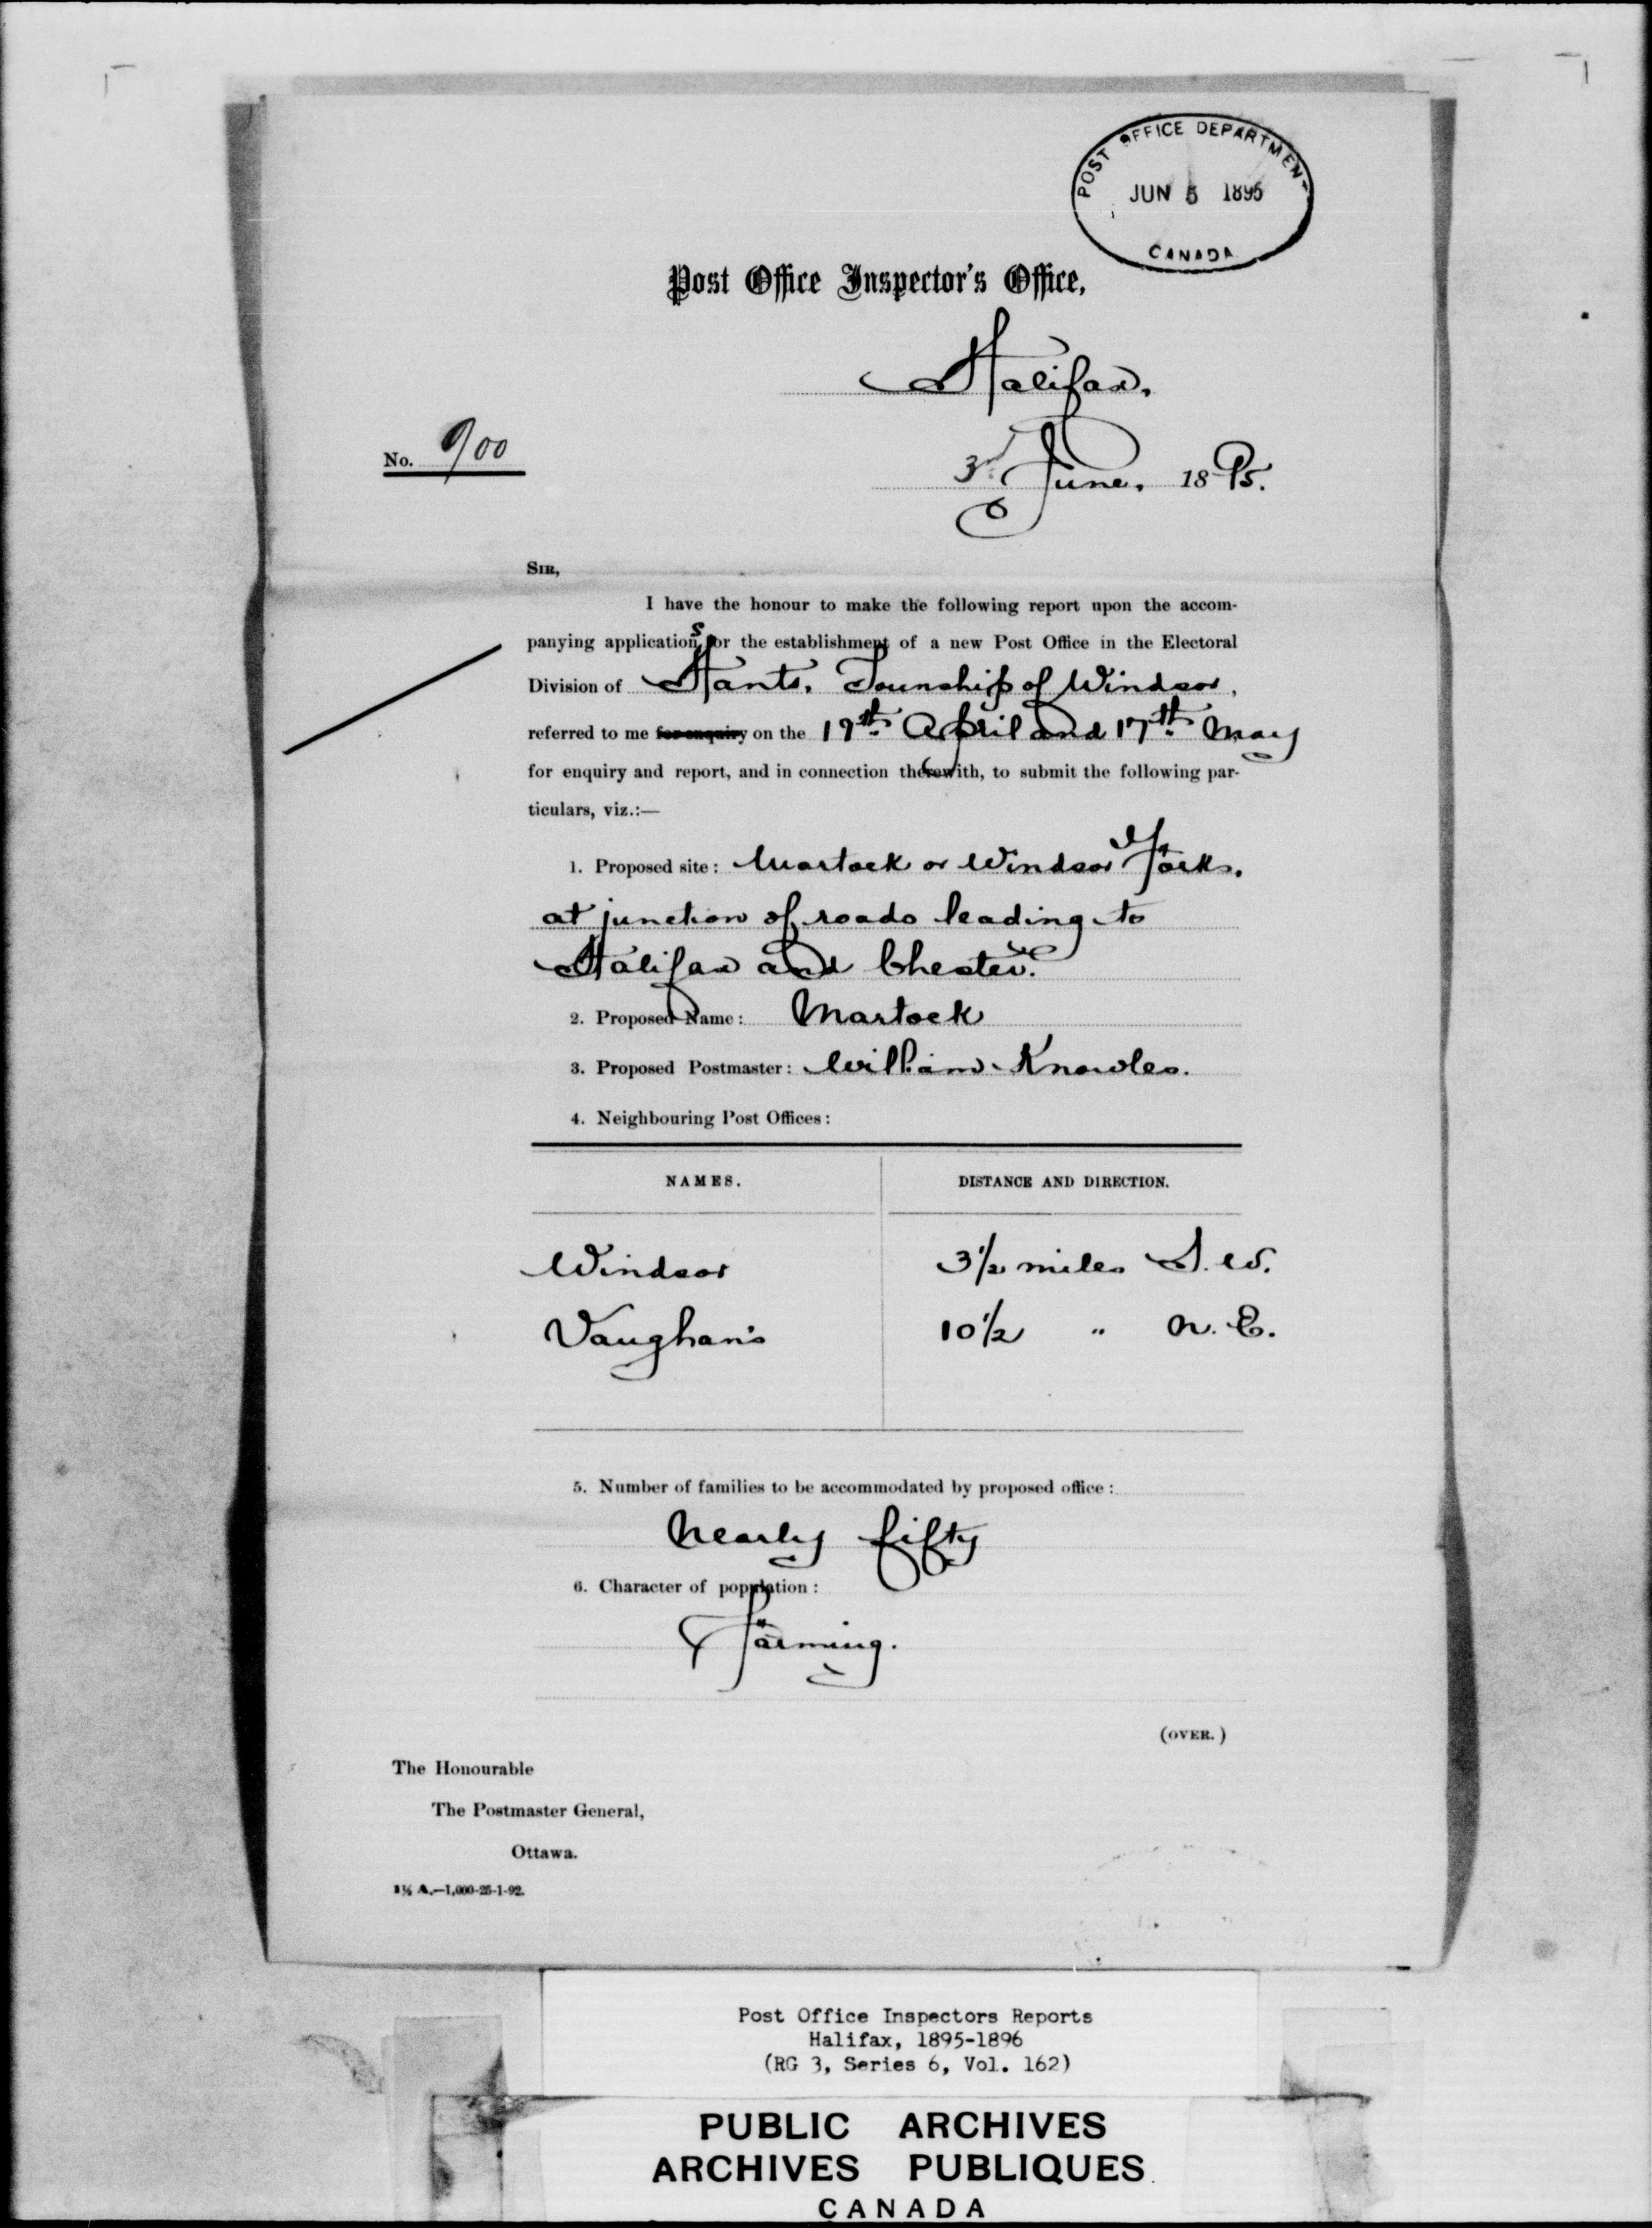 POST OFFICE DEPARTMENT
JUN 5 1895
CANADA
Post Office Inspector's Office,
Halifax,
No. 900
3rd June, 1895.
SIR,
I have the honour to make the following report upon the accom-
panying applications for the establishment of a new Post Office in the Electoral
Division of Hants, Township of Windsor,
referred to me for enquiry on the 19th April and 17th May
for enquiry and report, and in connection therewith, to submit the following par-
ticulars, viz.:—
1. Proposed site: Martock or Windsor Forks,
at junction of roads leading to
Halifax and Chester.
2. Proposed Name: Martock
3. Proposed Postmaster: William Knowles.
4. Neighbouring Post Offices:
NAMES. DISTANCE AND DIRECTION.
Windsor 3 1/2 miles S.W.
Vaughan's 10 1/2 " N.E.
5. Number of families to be accommodated by proposed office:
Nearly fifty
6. Character of population:
Farming.
(OVER.)
The Honourable
The Postmaster General,
Ottawa.
A.—1,000-25-1-92.
Post Office Inspectors Reports
Halifax, 1895-1896
(RG 3, Series 6, Vol. 162)
PUBLIC ARCHIVES
ARCHIVES PUBLIQUES
CANADA